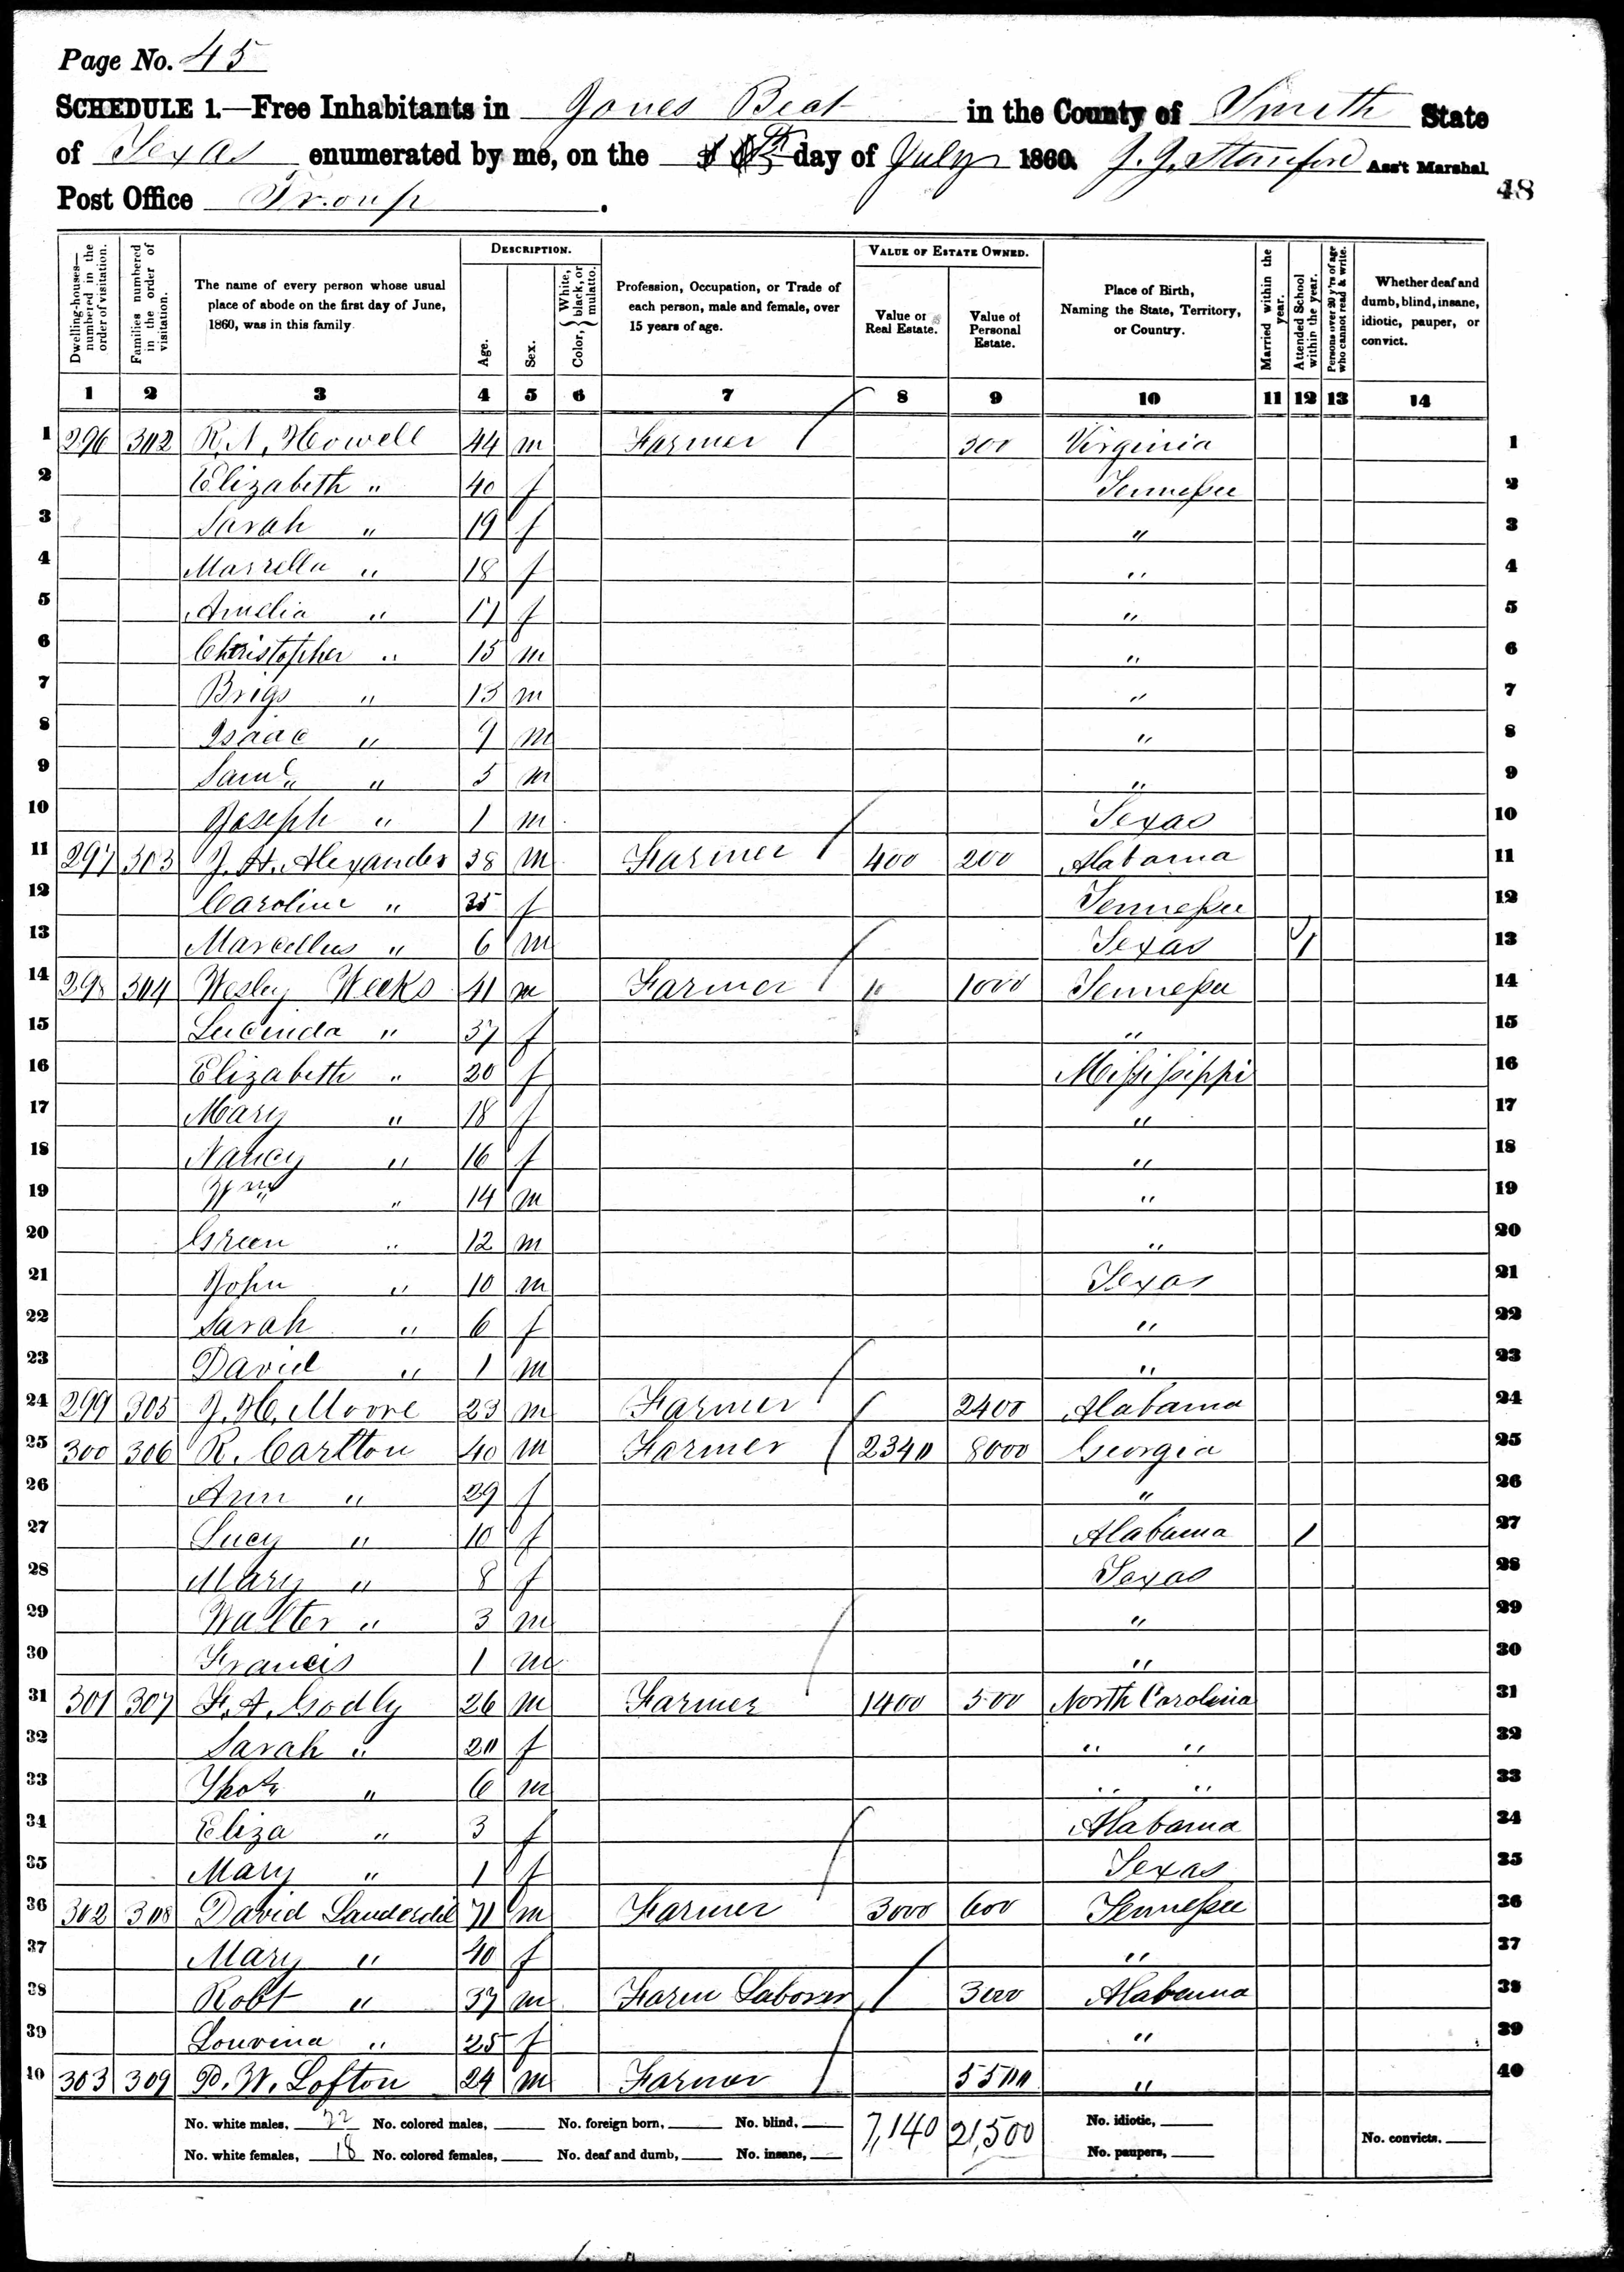 Page No. 45
SCHEDULE 1.—Free Inhabitants in Jones Beat in the County of Smith State
of Texas enumerated by me, on the day of July 1860. J. J. Stanford Ass't Marshal.
Post Office Troup.
48
Dwelling-houses—numbered in the order of visitation. Families numbered in the order of visitation. The name of every person whose usual place of abode on the first day of June, 1860, was in this family. DESCRIPTION. Age. Sex. Color, White, black, or mulatto. Profession, Occupation, or Trade of each person, male and female, over 15 years of age. VALUE OF ESTATE OWNED. Value of Real Estate. Value of Personal Estate. Place of Birth, Naming the State, Territory, or Country. Married within the year. Attended School within the year. Persons over 20 y'rs of age who cannot read & write. Whether deaf and dumb, blind, insane, idiotic, pauper, or convict.
1 2 3 4 5 6 7 8 9 10 11 12 13 14
1 296 302 R. N. Howell 44 m Farmer 300 Virginia 1
2 Elizabeth " 40 f Tennessee 2
3 Sarah " 19 f " 3
4 " 18 f " 4
5 Amelia " 17 f " 5
6 Christopher " 15 m " 6
7 Brigs " 13 m " 7
8 Isaac " 9 m " 8
9 Saml " 5 m " 9
10 Joseph " 1 m Texas 10
11 297 303 J. H. Alexander 38 m Farmer 400 200 Alabama 11
12 Caroline " 35 f Tennessee 12
13 Marcellus " 6 m Texas / 13
14 298 304 Wesley Weeks 41 m Farmer 1000 Tennessee 14
15 Lucinda " 37 f " 15
16 Elizabeth " 20 f Mississippi 16
17 Mary " 18 f " 17
18 Nancy " 16 f " 18
19 Wm " 14 m " 19
20 Green " 12 m " 20
21 John " 10 m Texas 21
22 Sarah " 6 f " 22
23 David " 1 m " 23
24 299 305 J. H. Moore 23 m Farmer 2400 Alabama 24
25 300 306 R. Carlton 40 m Farmer 2340 8000 Georgia 25
26 Ann " 29 f " 26
27 Lucy " 10 f Alabama / 27
28 Mary " 8 f Texas 28
29 Walter " 3 m " 29
30 Francis 1 m " 30
31 301 307 F. A. Godly 26 m Farmer 1400 500 North Carolina 31
32 Sarah " 20 f " " 32
33 Thos " 6 m " " 33
34 Eliza " 3 f Alabama 34
35 Mary " 1 f Texas 35
36 302 308 David 71 m Farmer 3000 600 Tennessee 36
37 Mary " 40 f " 37
38 Robt " 37 m Farm Laborer 3000 Alabama 38
39 Louvina " 25 f " 39
40 303 309 P. W. Lofton 24 m Farmer 5500 " 40
No. white males, 22 No. colored males, No. foreign born, No. blind, 7,140 21,500 No. idiotic,
No. white females, 18 No. colored females, No. deaf and dumb, No. insane, No. paupers, No. convicts.